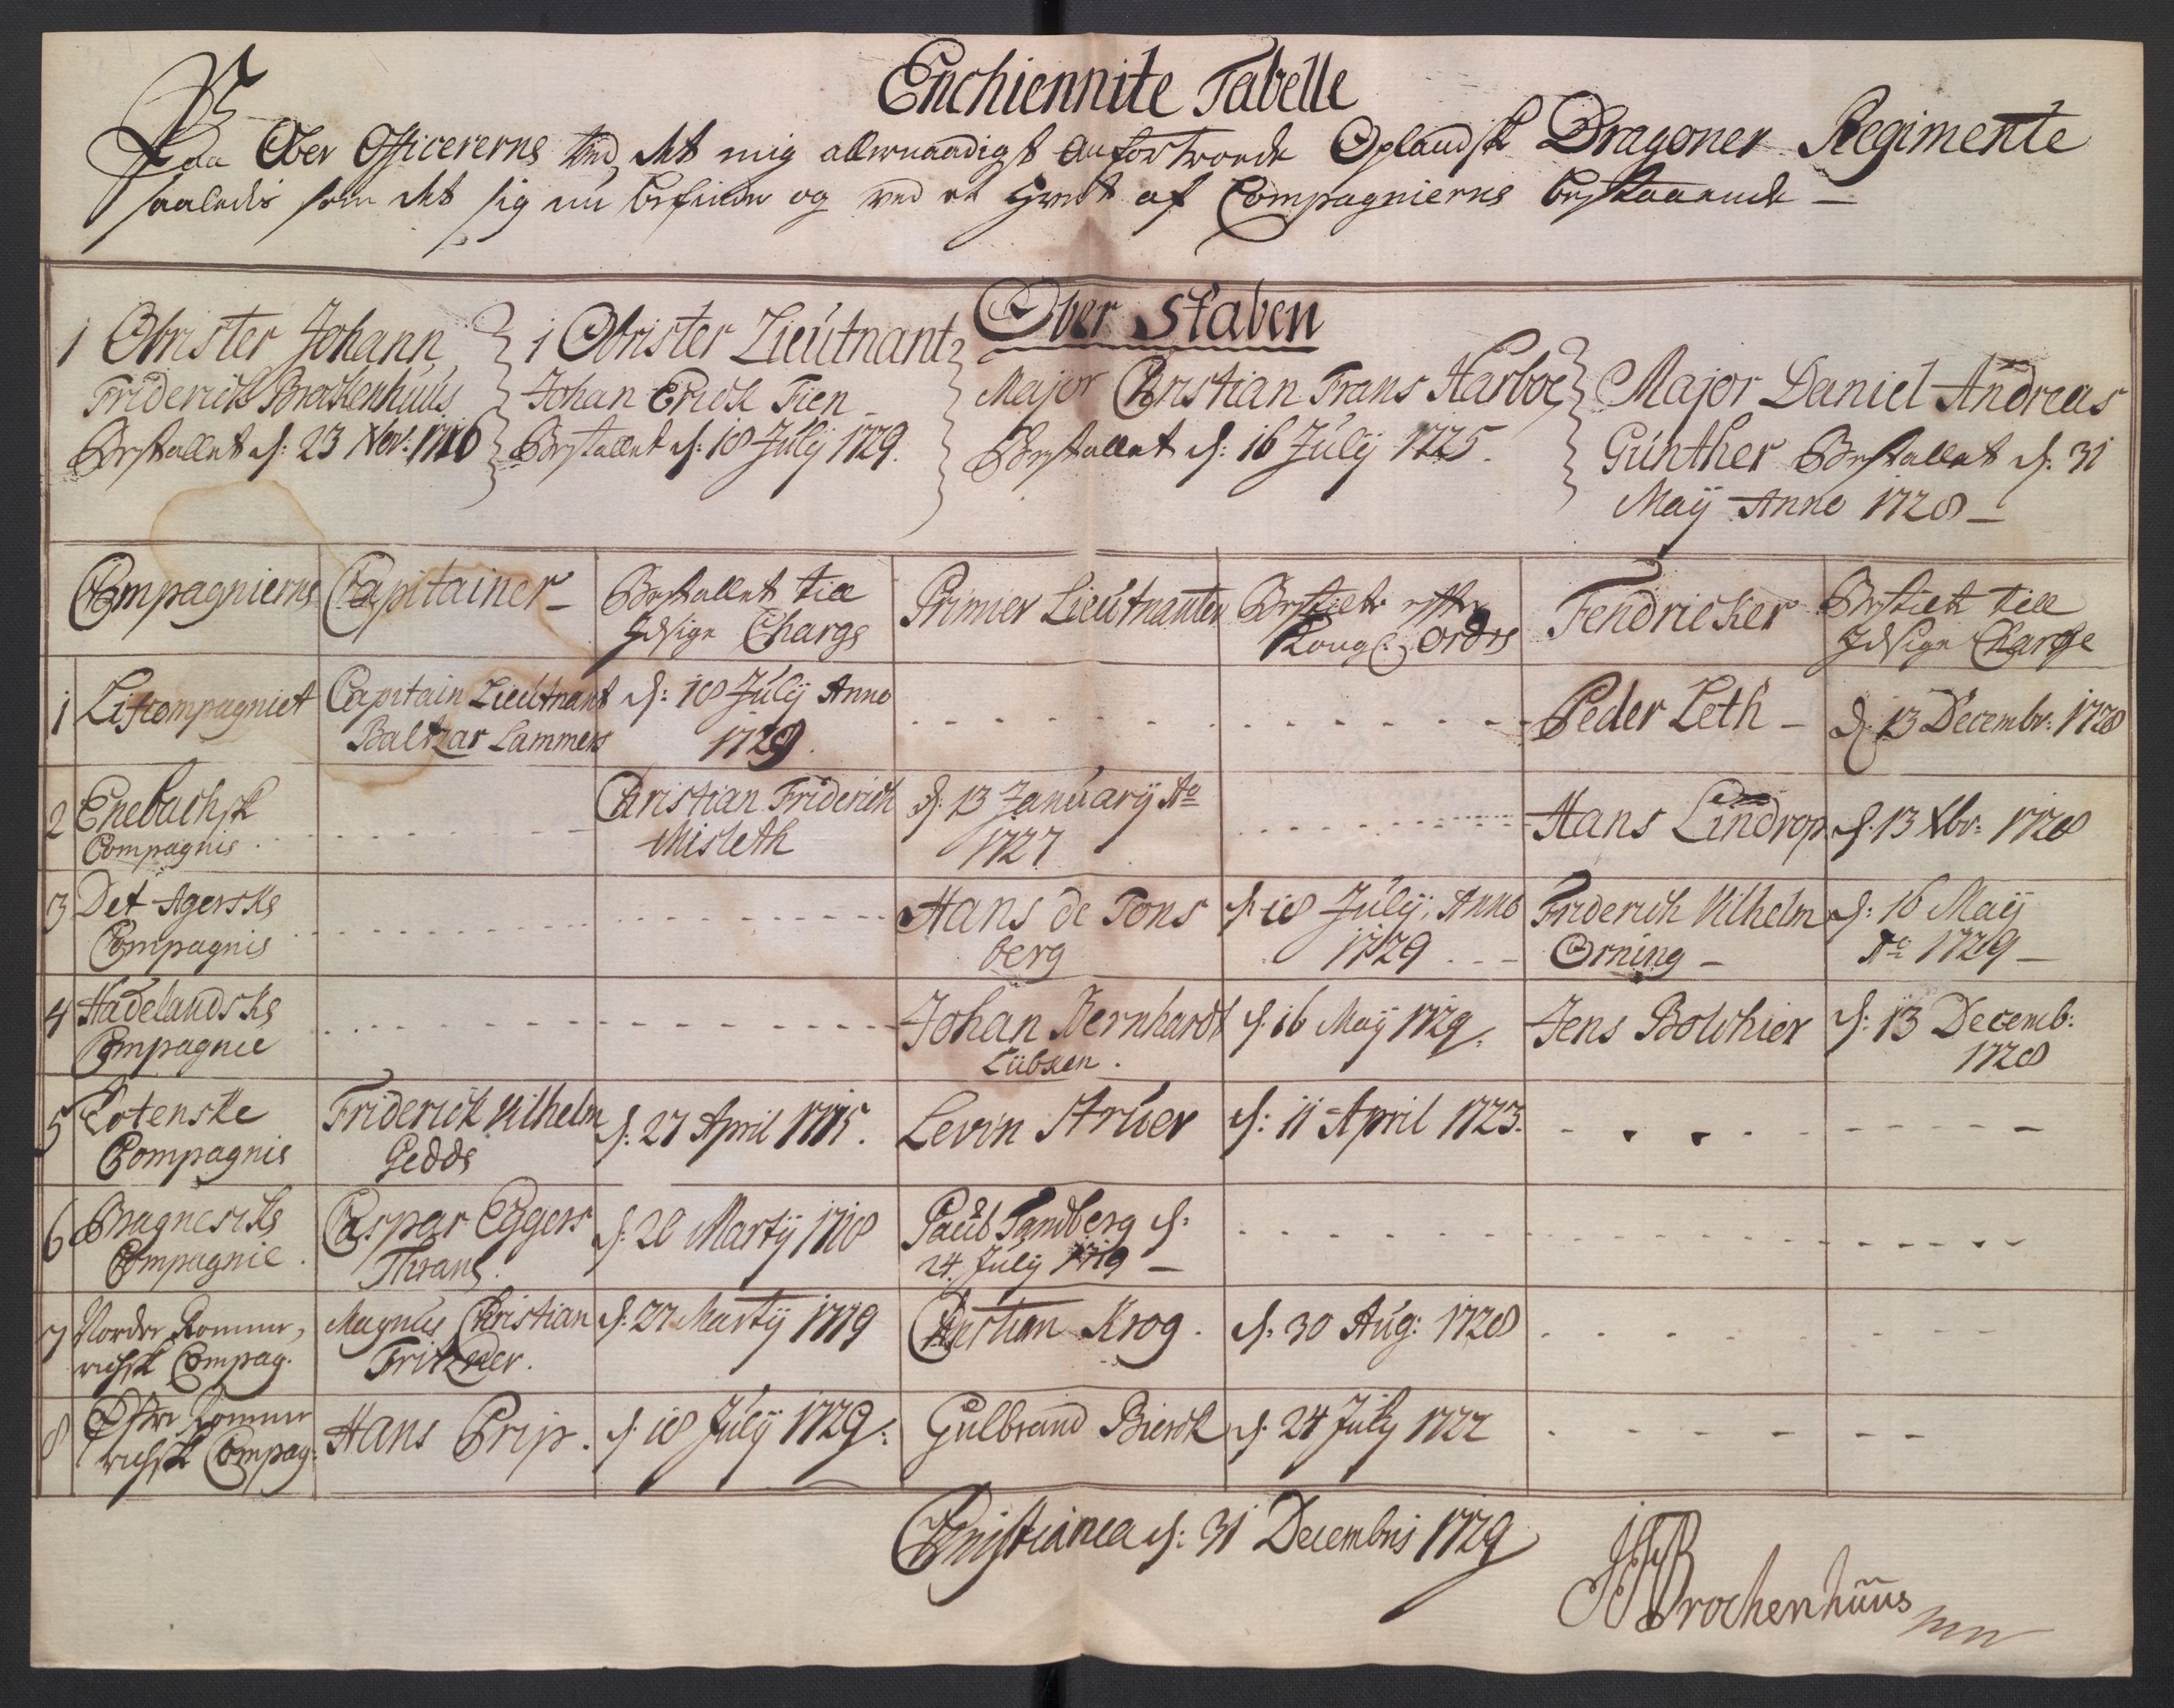 Enchiennite Tabelle
Paa Ober Officererne ved det mig allernaadigst anfortroede Oplandsk Dragoner Regimente
saaledis som det sig nu befinder og ved et hvert af Compagnierne bestaaende —
Ober Staben
1 Obrister Johann
Friderich Brockenhuus
Bestallet d: 23 Nov: 1716
1 Obrister Lieutnant
Johan Erich Fien
Bestallet d: 18 Julij 1729.
Major Christian Frans Harboe
Bestallet d: 16 Julij 1725.
Major Daniel Andreas
Günther Bestallet d. 31
Maij Anno 1728 —
Compagnierne
Capitainer
Bestallet till
Charge
Primier Lieutnanter
Bestilt efter
Kongl: Ordre
Fendricker
Bestilt till
Charge
1 Lifcompagniet
Capitain Lieutnant
Baltzar Lammers
d: 18 Julij Anno
1729.
Peder Leth —
d. 13 Decembr: 1728
2 Enebachsk
Compagnie.
Christian Friderich
Misleth
d. 13 Januarij Ao
1727
Hans Lindrop
d. 13 Xbr: 1728
3 Det Agerske
Compagnie
Hans de Tons
berg
d. 18 Julij, Anno
1729
Friderich Vilhelm
Orning —
d: 16 Maij
Ao 1729 —
4 Hadelandske
Compagnie
Johan Bernhardt
Lübken.
d. 16 Maij 1729.
Jens Bolchier
d: 13 Decemb:
1728
5 Totenske
Compagnie
Friderich Vilhelm
Gedde
d. 27 April 1715.
Levin Strüer
d: 11 April 1723.
6 Bragneske
Compagnie.
Caspar Eggers
Thrane.
d. 28 Martij 1718
Paul Sandberg d:
24. Julij 1719 —
7 Nordre Romme,
richsk Compag.
Magnus Christian
Fritzner.
d. 27 Martij 1719
Christian Krog.
d. 30 Aug: 1728
8 Østre Romme
richsk Compag:
Hans Prip.
d. 18 Julij 1729.
Gulbrand Bierck
d. 24 July 1722
Christiania d: 31 Decembris 1729
JFBrockenhuus